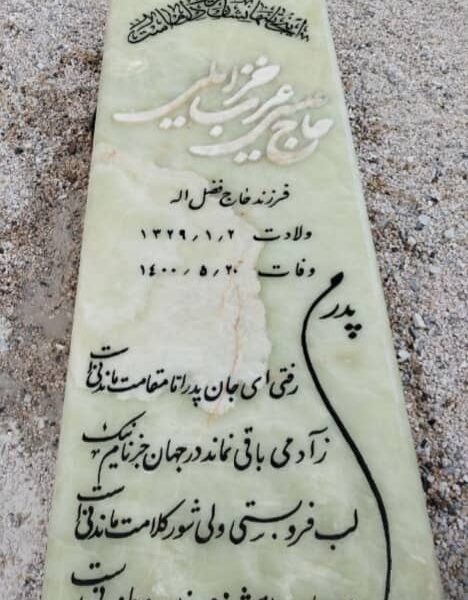 حاج عیسی عرب خزائلی
فرزند حاج فضل اله
ولادت ۱۳۲۹٫۱٫۲
وفات ۱۴۰۰٫۵٫۲۰
پدر
رفتی ای جان پدر اما مقامت ماندنی است
ز آدمی باقی نماند در جهان جز نام نیک
لب فرو بستی ولی شور کلامت ماندنی است